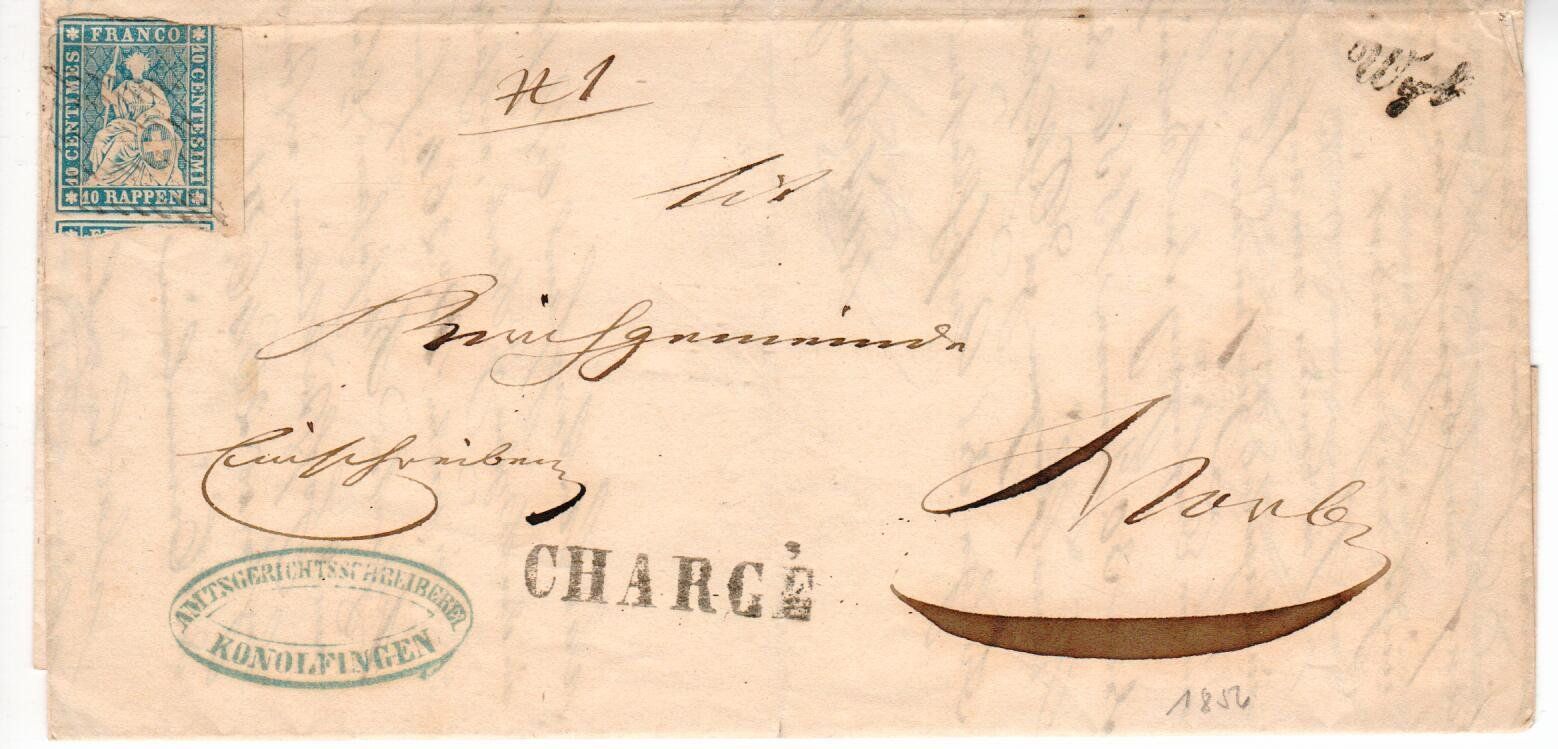 FRANCO
10 CENTIMES
10 CENTESIMI
10 RAPPEN
Wyl
Tit
Kirchgemeinde
Einschreiben
Worb
CHARGÉ
AMTSGERICHTSSCHREIBEREI
KONOLFINGEN
1856